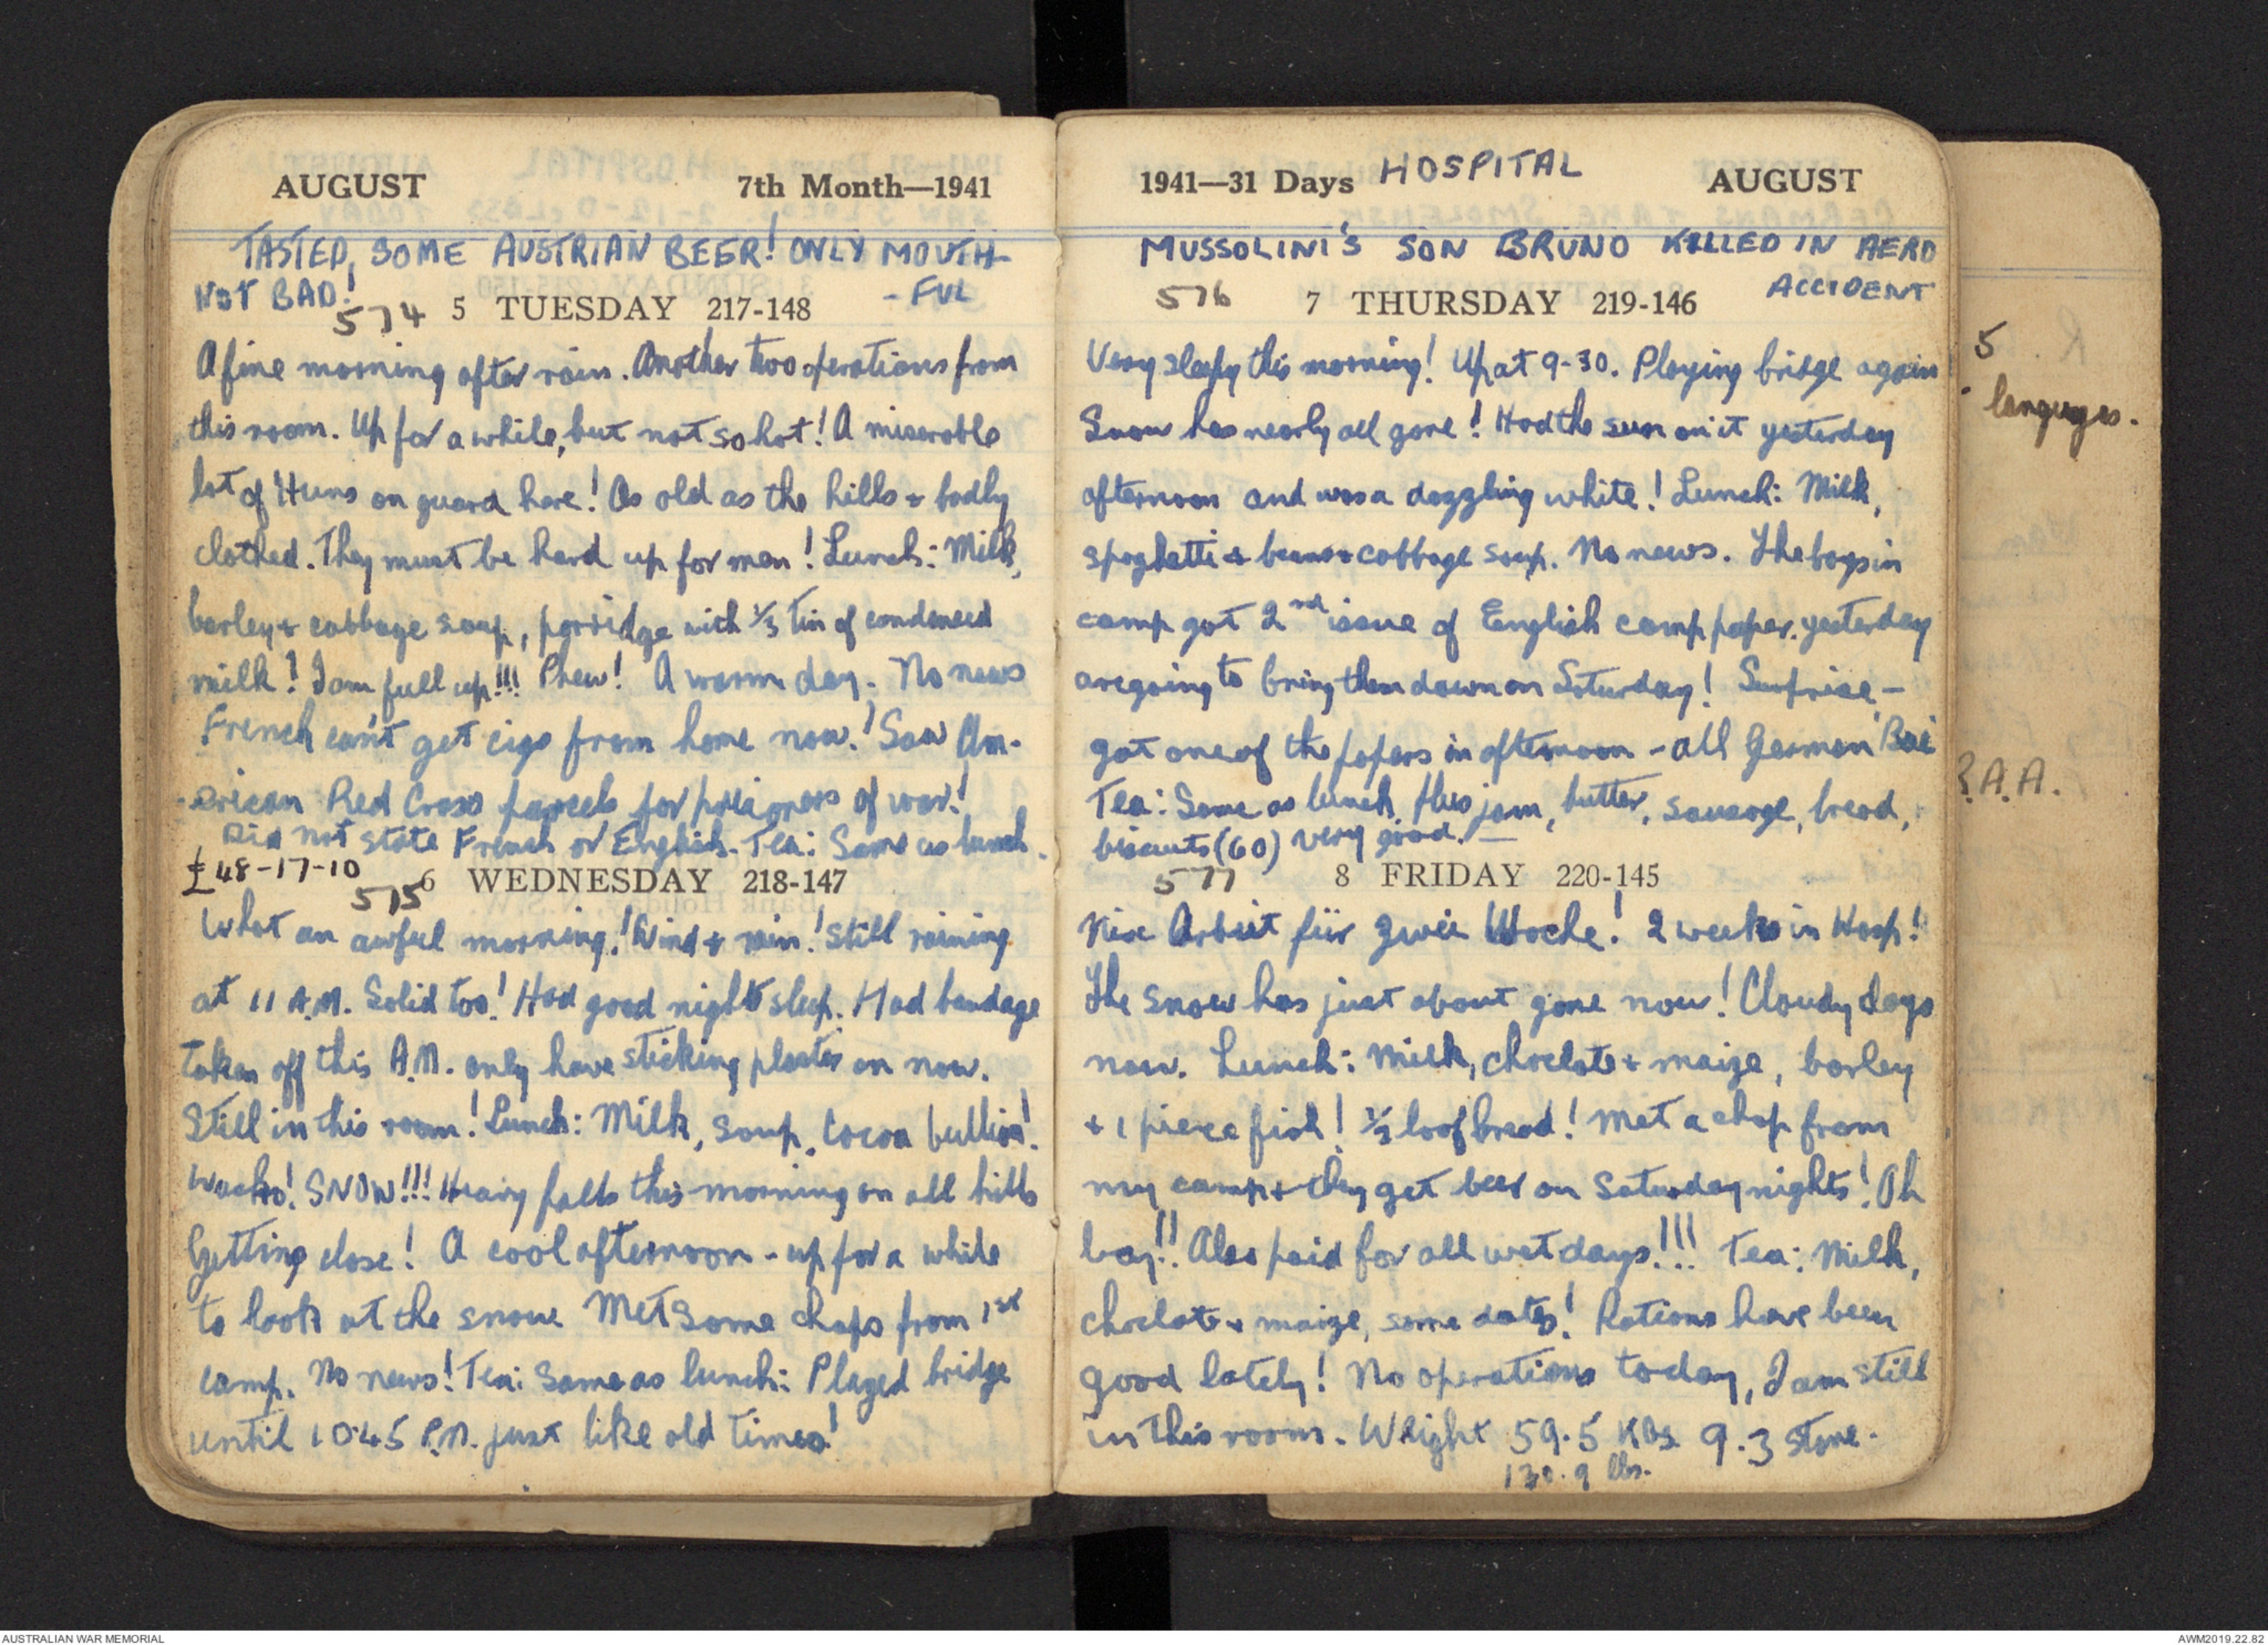 AUGUST 7th Month—1941
TASTED SOME AUSTRIAN BEER! ONLY MOUTH-
NOT BAD! -FUL
574 5 TUESDAY 217-148
A fine morning after rain. Another two operations from
this room. Up for a while, but not so hot! A miserable
lot of Huns on guard here! As old as the hills + badly
clothed. They must be hard up for men! Lunch: Milk,
barley + cabbage soup, porridge with 1/3 tin of condensed
milk! I am full up!!! Phew! A warm day. No news
French can't get cigs from home now! Saw Am-
erican Red Cross parcels for prisoners of war!
Did not state French or English. Tea: Same as lunch.
£48-17-10
575 6 WEDNESDAY 218-147
What an awful morning! Wind + rain! Still raining
at 11 A.M. Solid too! Had good nights sleep. Had bandage
taken off this A.M. only have sticking plaster on now.
Still in this room! Lunch: Milk, soup, cocoa
Wacko! SNOW!!! Heavy falls this morning on all hills
Getting close! A cool afternoon - up for a while
to look at the snow Met some chaps from 1st
camp. No news! Tea: Same as lunch: Played bridge
until 10.45 P.M. just like old times!
1941—31 Days HOSPITAL AUGUST
MUSSOLINI'S SON BRUNO KILLED IN AERO
ACCIDENT
576 7 THURSDAY 219-146
Very sleepy this morning! Up at 9-30. Playing bridge again
Snow has nearly all gone! Had the sun on it yesterday
afternoon and was a dazzling white! Lunch: Milk,
spaghetti + beans + cabbage soup. No news. The boys in
camp got 2nd issue of English camp paper yesterday
are going to bring them down on Saturday! Surprise -
got one of the papers in afternoon - all German
Tea: Same as lunch plus jam, butter, sausage, bread,
biscuits (60) very good. —
577 8 FRIDAY 220-145
Nix Arbeit für zwei Woche! 2 weeks in Hosp!
The snow has just about gone now! Cloudy days
now. Lunch: Milk, choclate + maize, barley
+ 1 piece fish! 1/3 loaf bread! Met a chap from
my camp + they get beer on Saturday nights! Oh
boy!! Also paid for all wet days!!! Tea: Milk,
choclate + maize, some dates! Rations have been
good lately! No operations today, I am still
in this room. Weight 59.5 KGs 9.3 stone.
130.9 lbs.
5
languages.
R.A.A.
AUSTRALIAN WAR MEMORIAL
AWM2019.22.82